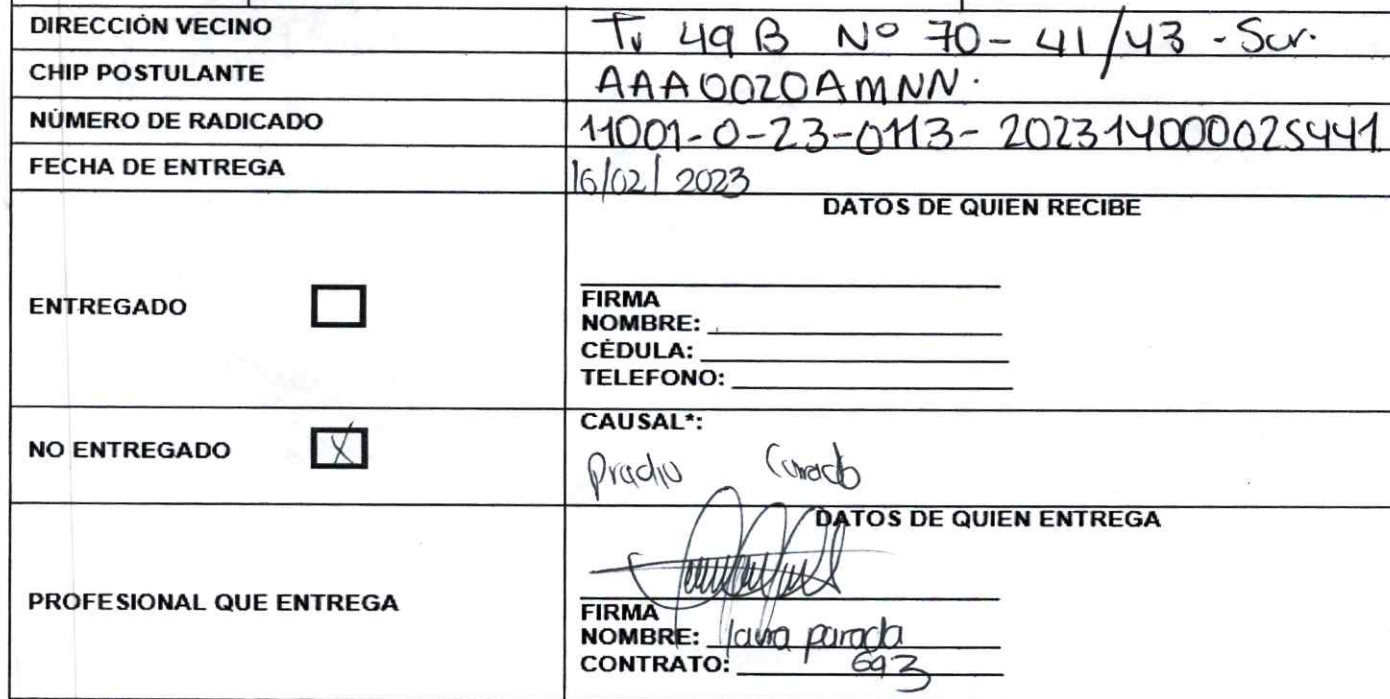 DIRECCIÓN VECINO Tv 49 B Nº 70 - 41/43 - Sur.
CHIP POSTULANTE AAA0020AMNN.
NÚMERO DE RADICADO 11001-0-23-0113-202314000025441
FECHA DE ENTREGA 16/02/2023
DATOS DE QUIEN RECIBE
ENTREGADO
FIRMA
NOMBRE:
CÉDULA:
TELEFONO:
NO ENTREGADO X
CAUSAL*:
Predio Cerrado
DATOS DE QUIEN ENTREGA
PROFESIONAL QUE ENTREGA
FIRMA
NOMBRE: laura parada
CONTRATO: 693